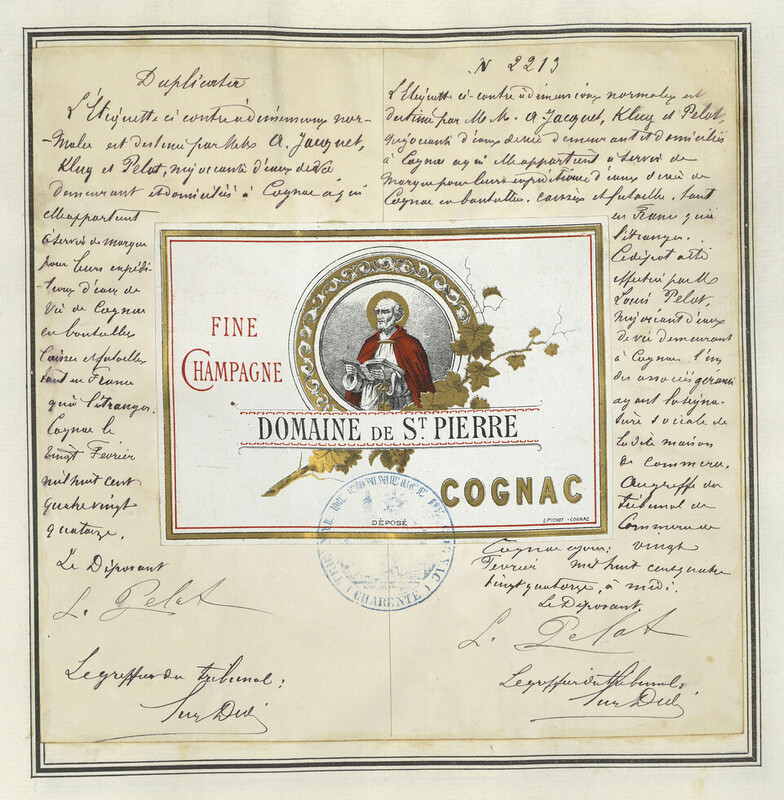 Duplicata
L'Etiquette ci contre à dimensions nor-
-males est destinée par MM. A. Jacquet,
Klug et Pelot, négociants d'eaux de vie
demeurant et domiciliés à Cognac à qui
elle appartient
à servir de marque
pour leurs expédi-
-tions d'eaux de
Vie de Cognac
en bouteilles
Caisses et futailles
tant en France
qu'à l'étranger.
Cognac le
vingt Février
mil huit cent
quatre vingt
quatorze.
Le Déposant
L. Pelot
Le greffier du tribunal:
N 2213
L'Etiquette ci-contre à dimensions normales est
destinée par M.M. A. Jacquet, Klug et Pelot,
négociants d'eaux de vie demeurant et domiciliés
à Cognac à qui elle appartient à servir de
marque pour leurs expéditions d'eaux de vie de
Cognac en bouteilles, caisses et futailles, tant
en France qu'à
l'étranger.
Ce dépôt a été
effectué par M.
Louis Pelot,
négociant d'eaux
de vie demeurant
à Cognac l'un
des associés gérants
ayant la signa-
ture sociale de
la dite maison
de commerce.
Au greffe du
tribunal de
Commerce de
Cognac ce jour: vingt
Février mil huit cent quatre
vingt quatorze, à midi.
Le Déposant.
L. Pelot
Le greffier du tribunal:
FINE
CHAMPAGNE
DOMAINE DE ST PIERRE
COGNAC
DÉPOSÉ
L. PICHOT - COGNAC
TRIBUNAL DE COMMERCE DE COGNAC
(CHARENTE)